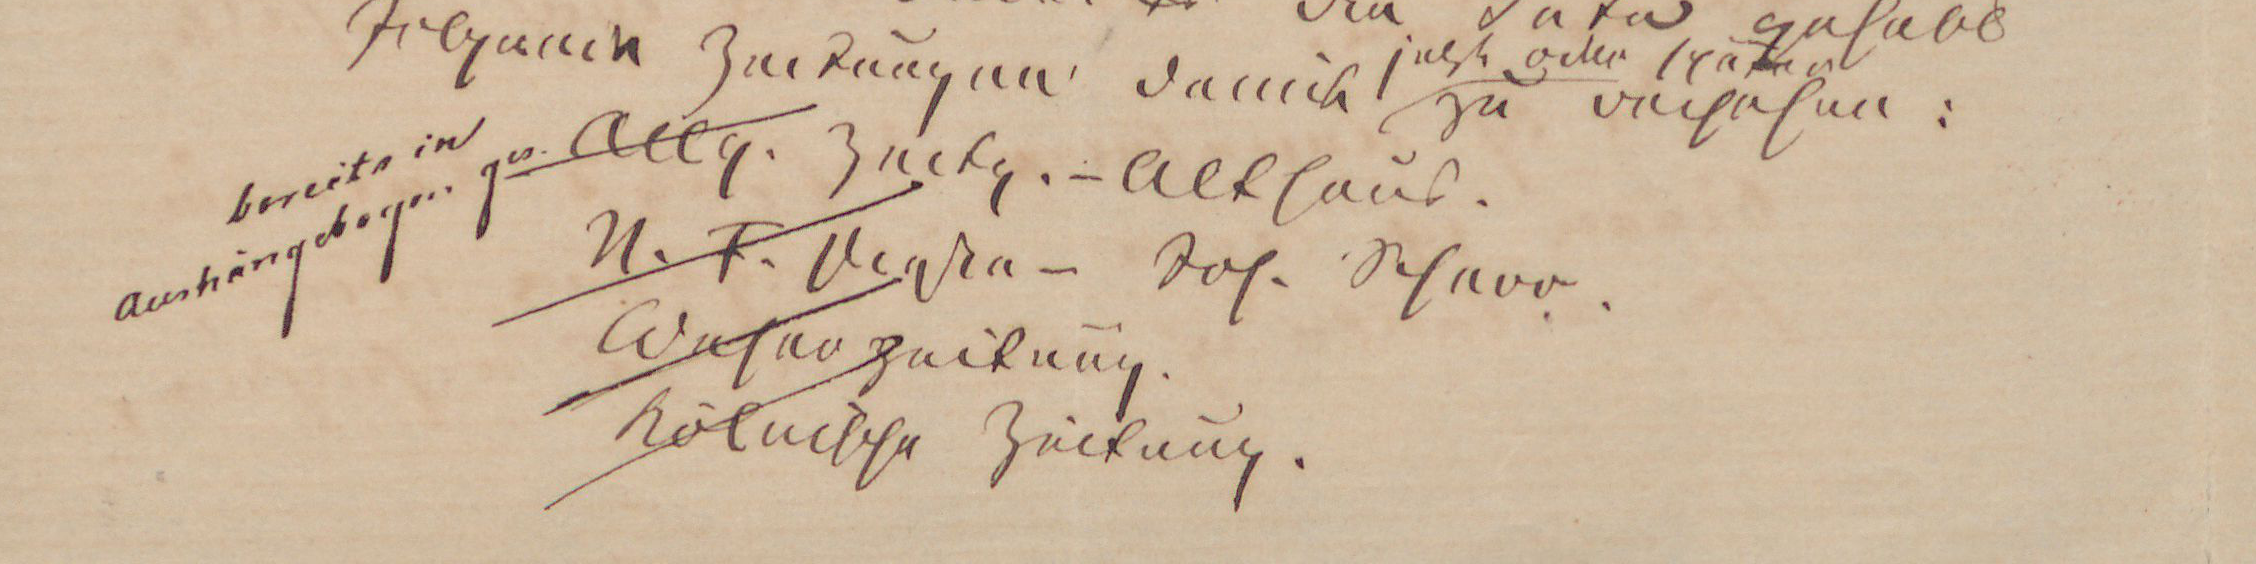 die Güte gehabt
folgende Zeitungen damit jetzt oder später zu versehen:
bereits in
Aushängebogen ges. Allg. Zeitg. – Althaus.
N. F. Presse – Joh. Scherr.
Weserzeitung.
Kölnische Zeitung.